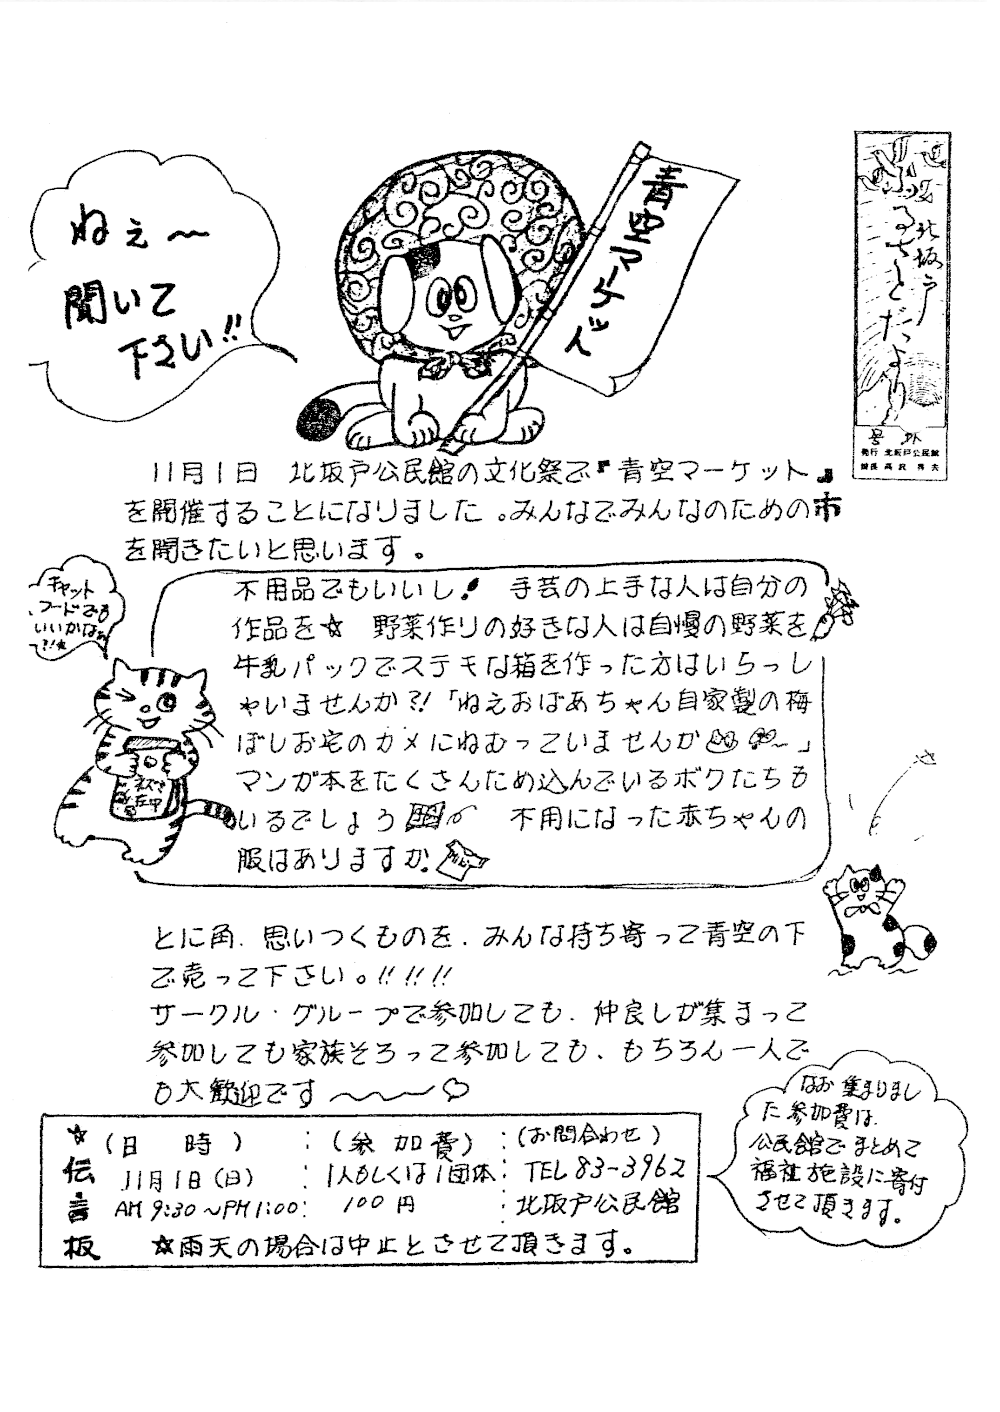 ねぇ〜
聞いて
下さい!!
青空マーケット
北坂戸
ふるさとだより
号外
発行 北坂戸公民館
11月1日 北坂戸公民館の文化祭で『青空マーケット』
を開催することになりました。みんなでみんなのための市
を開きたいと思います。
キャット
フードでも
いいかなぁ
?!☆
不用品でもいいし! 手芸の上手な人は自分の
作品を☆ 野菜作りの好きな人は自慢の野菜を
牛乳パックでステキな箱を作った方はいらっし
ゃいませんか?!「ねえおばあちゃん自家製の梅
ぼしお宅のカメにねむっていませんか〜」
マンガ本をたくさんため込んでいるボクたちも
いるでしょう 不用になった赤ちゃんの
服はありますか.
とに角、思いつくものを、みんな持ち寄って青空の下
で売って下さい。!!!!!!
サークル・グループで参加しても、仲良しが集まって
参加しても家族そろって参加しても、もちろん一人で
も大歓迎です〜〜〜♡
☆伝言板
(日 時) : (参加費) : (お問合わせ)
11月1日(日) : 1人もしくは1団体 : TEL 83-3962
AM 9:30〜PM 1:00 : 100円 : 北坂戸公民館
☆雨天の場合は中止とさせて頂きます。
なお 集まりまし
た 参加費は、
公民館でまとめて
福祉施設に寄付
させて頂きます。